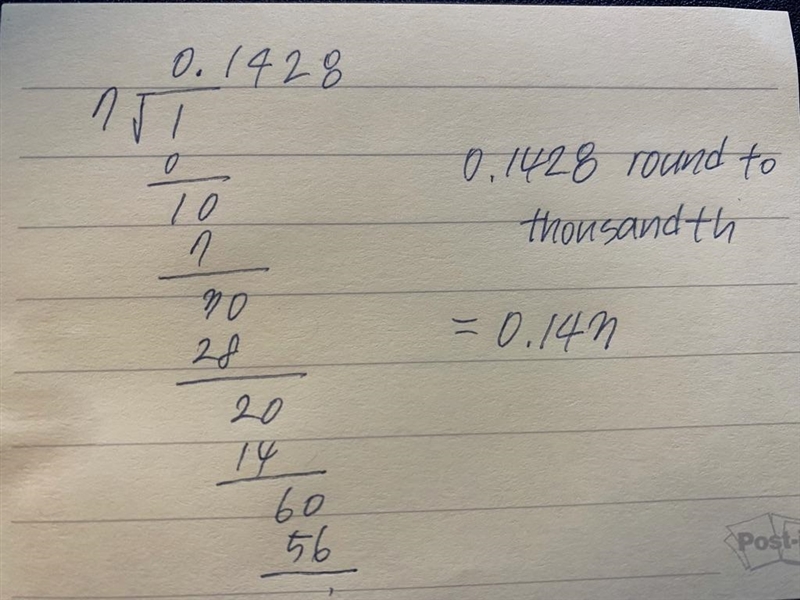 0.1428
7√1
0
10
7
30
28
20
14
60
56
0.1428 round to
thousandth
= 0.143
Post-i